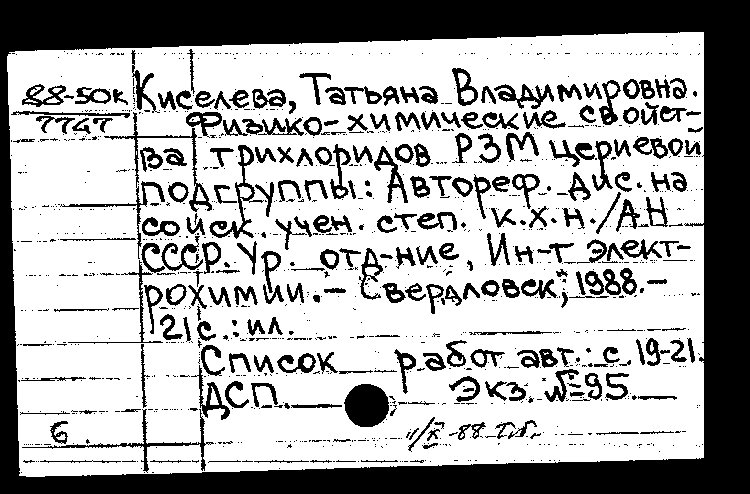 88-50к Киселева, Татьяна Владимировна.
774т Физико-химические свойст-
ва трихлоридов РЗМ цериевой
подгруппы: Автореф. дис. на
соиск. учен. степ. к.х.н./АН
СССР. Ур. отд-ние, Ин-т элект-
рохимии.- Свердловск, 1988.-
21с.:ил.
Список работ авт.: с. 19-21.
ДСП. Экз. №95.
6.